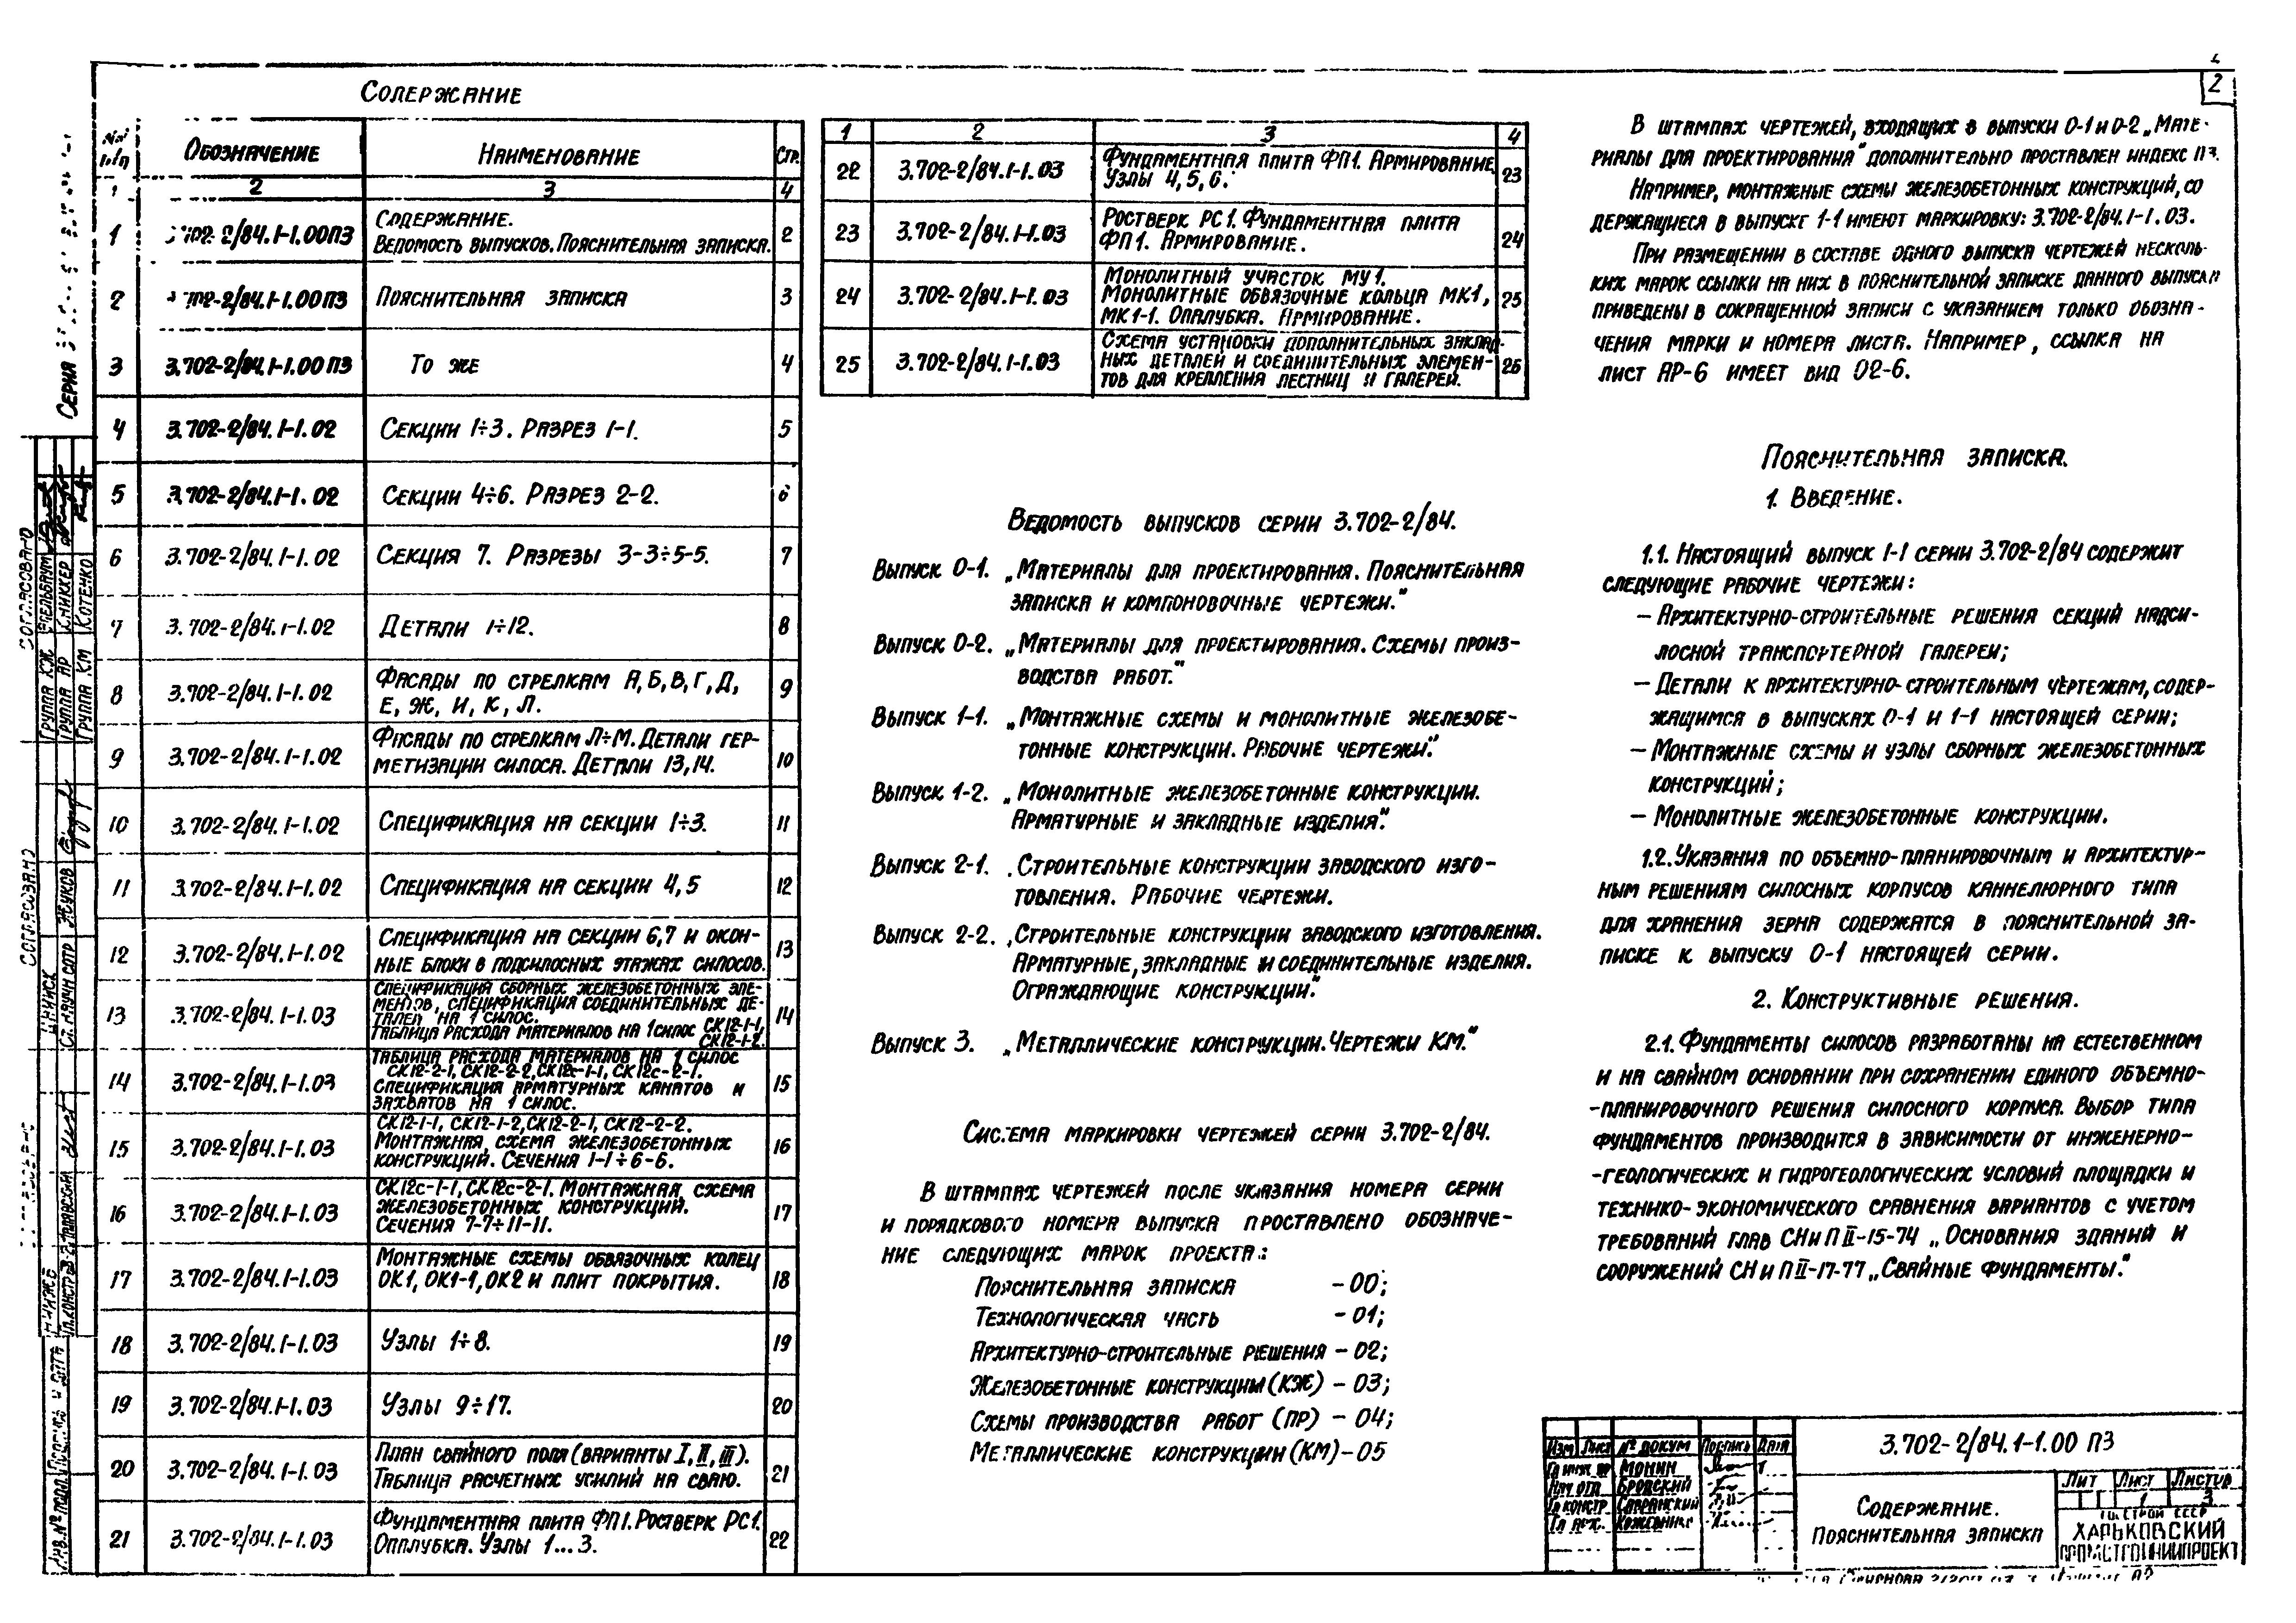 2
Содержание
№№ п/п Обозначение Наименование Стр.
1 2 3 4
1 3.702-2/84.1-1.00ПЗ Содержание.
Ведомость выпусков. Пояснительная записка. 2
2 3.702-2/84.1-1.00ПЗ Пояснительная записка 3
3 3.702-2/84.1-1.00ПЗ То же 4
4 3.702-2/84.1-1.02 Секции 1÷3. Разрез 1-1. 5
5 3.702-2/84.1-1.02 Секции 4÷6. Разрез 2-2. 6
6 3.702-2/84.1-1.02 Секция 7. Разрезы 3-3÷5-5. 7
7 3.702-2/84.1-1.02 Детали 1÷12. 8
8 3.702-2/84.1-1.02 Фасады по стрелкам А,Б,В,Г,Д,
Е, Ж, И, К, Л. 9
9 3.702-2/84.1-1.02 Фасады по стрелкам Л÷М. Детали гер-
метизации силоса. Детали 13,14. 10
10 3.702-2/84.1-1.02 Спецификация на секции 1÷3. 11
11 3.702-2/84.1-1.02 Спецификация на секции 4,5 12
12 3.702-2/84.1-1.02 Спецификация на секции 6,7 и окон-
ные блоки в подсилосных этажах силосов. 13
13 3.702-2/84.1-1.03 Спецификация сборных железобетонных эле-
ментов, спецификация соединительных де-
талей на 1 силос.
Таблица расхода материалов на 1 силос СК12-1-1,
СК12-1-2. 14
14 3.702-2/84.1-1.03 Таблица расхода материалов на 1 силос
СК12-2-1, СК12-2-2, СК12с-1-1, СК12с-2-1.
Спецификация арматурных канатов и
захватов на 1 силос. 15
15 3.702-2/84.1-1.03 СК12-1-1, СК12-1-2, СК12-2-1, СК12-2-2.
Монтажная схема железобетонных
конструкций. Сечения 1-1÷6-6. 16
16 3.702-2/84.1-1.03 СК12с-1-1, СК12с-2-1. Монтажная схема
железобетонных конструкций.
Сечения 7-7÷11-11. 17
17 3.702-2/84.1-1.03 Монтажные схемы обвязочных колец
ОК1, ОК1-1, ОК2 и плит покрытия. 18
18 3.702-2/84.1-1.03 Узлы 1÷8. 19
19 3.702-2/84.1-1.03 Узлы 9÷17. 20
20 3.702-2/84.1-1.03 План свайного поля (варианты I, II, III).
Таблица расчетных усилий на сваю. 21
21 3.702-2/84.1-1.03 Фундаментная плита ФП1. Ростверк РС1.
Опалубка. Узлы 1...3. 22
1 2 3 4
22 3.702-2/84.1-1.03 Фундаментная плита ФП1. Армирование.
Узлы 4, 5, 6. 23
23 3.702-2/84.1-1.03 Ростверк РС1. Фундаментная плита
ФП1. Армирование. 24
24 3.702-2/84.1-1.03 Монолитный участок МУ1.
Монолитные обвязочные кольца МК1,
МК1-1. Опалубка. Армирование. 25
25 3.702-2/84.1-1.03 Схема установки дополнительных заклад-
ных деталей и соединительных элемен-
тов для крепления лестниц и галерей. 26
Ведомость выпусков серии 3.702-2/84.
Выпуск 0-1. „Материалы для проектирования. Пояснительная
записка и компоновочные чертежи."
Выпуск 0-2. „Материалы для проектирования. Схемы произ-
водства работ."
Выпуск 1-1. „Монтажные схемы и монолитные железобе-
тонные конструкции. Рабочие чертежи."
Выпуск 1-2. „Монолитные железобетонные конструкции.
Арматурные и закладные изделия."
Выпуск 2-1. „Строительные конструкции заводского изго-
товления. Рабочие чертежи.
Выпуск 2-2. „Строительные конструкции заводского изготовления.
Арматурные, закладные и соединительные изделия.
Ограждающие конструкции."
Выпуск 3. „Металлические конструкции. Чертежи КМ."
Система маркировки чертежей серии 3.702-2/84.
В штампах чертежей после указания номера серии
и порядкового номера выпуска проставлено обозначе-
ние следующих марок проекта:
Пояснительная записка - 00;
Технологическая часть - 01;
Архитектурно-строительные решения - 02;
Железобетонные конструкции (КЖ) - 03;
Схемы производства работ (ПР) - 04;
Металлические конструкции (КМ) - 05
В штампах чертежей, входящих в выпуски 0-1 и 0-2 „Мате-
риалы для проектирования" дополнительно проставлен индекс ПЗ.
Например, монтажные схемы железобетонных конструкций, со
держащиеся в выпуске 1-1 имеют маркировку: 3.702-2/84.1-1.03.
При размещении в составе одного выпуска чертежей несколь-
ких марок ссылки на них в пояснительной записке данного выпуска
приведены в сокращенной записи с указанием только обозна-
чения марки и номера листа. Например, ссылка на
лист АР-6 имеет вид 02-6.
Пояснительная записка.
1. Введение.
1.1. Настоящий выпуск 1-1 серии 3.702-2/84 содержит
следующие рабочие чертежи:
— Архитектурно-строительные решения секций надси-
лосной транспортерной галереи;
— Детали к архитектурно-строительным чертежам, содер-
жащимся в выпусках 0-1 и 1-1 настоящей серии;
— Монтажные схемы и узлы сборных железобетонных
конструкций;
— Монолитные железобетонные конструкции.
1.2. Указания по объемно-планировочным и архитектур-
ным решениям силосных корпусов каннелюрного типа
для хранения зерна содержатся в пояснительной за-
писке к выпуску 0-1 настоящей серии.
2. Конструктивные решения.
2.1. Фундаменты силосов разработаны на естественном
и на свайном основании при сохранении единого объемно-
-планировочного решения силосного корпуса. Выбор типа
фундаментов производится в зависимости от инженерно-
-геологических и гидрогеологических условий площадки и
технико-экономического сравнения вариантов с учетом
требований глав СНиП II-15-74 „Основания зданий и
сооружений СНиП II-17-77 „Свайные фундаменты."
Изм Лист № докум Подпись Дата
Гл инж пр Монин
Нач отд Бродский
Гл констр
Гл арх.
3.702-2/84.1-1.00 ПЗ
Содержание.
Пояснительная записка
Лит Лист Листов
1 3
Госстрой СССР
Харьковский
Промстройниипроект
Серия
Согласовано
Группа КЖ
Группа АР
Группа КМ Котенко
Согласовано
Ст. научн сотр Жуков
Инв. № подл Подпись и дата